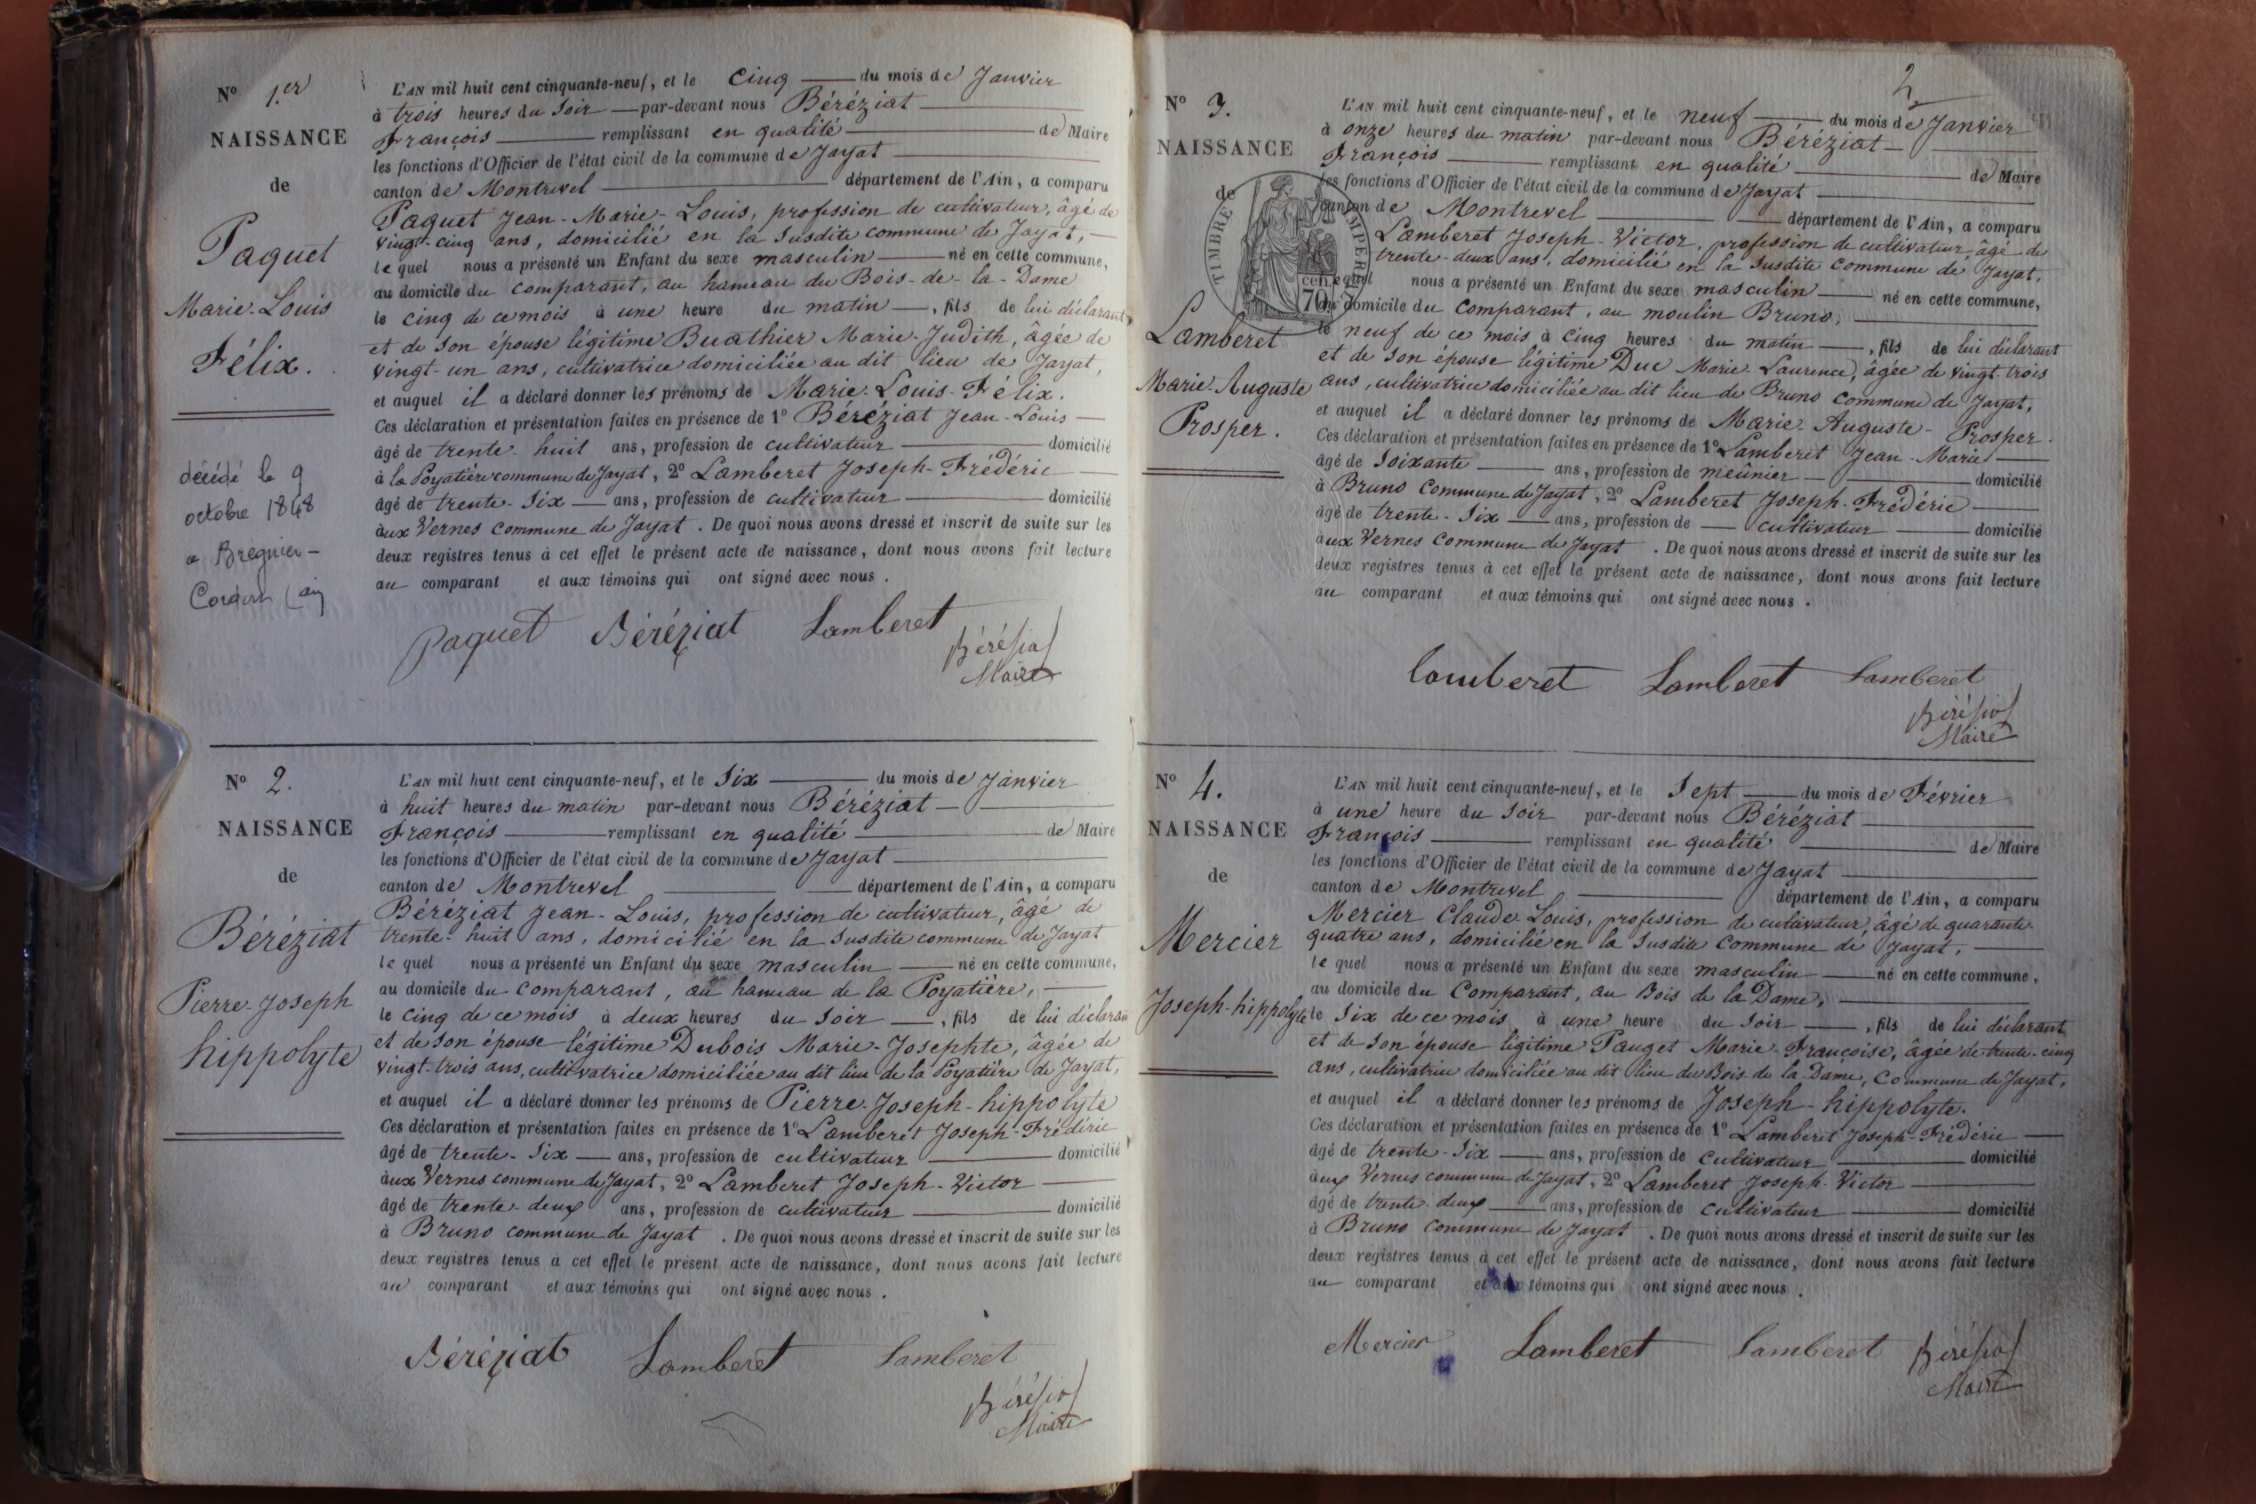 N° 1.er
NAISSANCE
de
Paquet
Marie-Louis
Félix.
décédé le 9
octobre 1848
a Bregnier-
Cordon (ain)
L'AN mil huit cent cinquante-neuf, et le Cinq du mois de Janvier
à trois heures du Soir par-devant nous Béréziat
François remplissant en qualité de Maire
les fonctions d'Officier de l'état civil de la commune de Jayat
canton de Montrevel département de l'Ain, a comparu
Paquet Jean-Marie-Louis, profession de cultivateur, âgé de
vingt-cinq ans, domicilié en la Susdite commune de Jayat,
lequel nous a présenté un Enfant du sexe masculin né en cette commune,
au domicile du comparant, au hameau du Bois-de-la-Dame
le cinq de ce mois à une heure du matin, fils de lui déclarant
et de Son épouse légitime Buathier Marie-Judith, âgée de
vingt-un ans, cultivatrice domiciliée au dit lieu de Jayat,
et auquel il a déclaré donner les prénoms de Marie-Louis-Félix.
Ces déclaration et présentation faites en présence de 1° Béréziat Jean-Louis
âgé de trente-huit ans, profession de cultivateur domicilié
à la Poyatière commune de Jayat, 2° Lamberet Joseph-Frédéric
âgé de trente-Six ans, profession de cultivateur domicilié
aux Vernes Commune de Jayat. De quoi nous avons dressé et inscrit de suite sur les
deux registres tenus à cet effet le présent acte de naissance, dont nous avons fait lecture
au comparant et aux témoins qui ont signé avec nous.
Paquet Béréziat Lamberet
Béréziat
Maire
N° 2.
NAISSANCE
de
Béréziat
Pierre-Joseph
hippolyte
L'AN mil huit cent cinquante-neuf, et le Six du mois de Janvier
à huit heures du matin par-devant nous Béréziat
François remplissant en qualité de Maire
les fonctions d'Officier de l'état civil de la commune de Jayat
canton de Montrevel département de l'Ain, a comparu
Béréziat Jean-Louis, profession de cultivateur, âgé de
trente-huit ans, domicilié en la Susdite commune de Jayat
lequel nous a présenté un Enfant du sexe masculin né en cette commune,
au domicile du comparant, au hameau de la Poyatière,
le cinq de ce mois à deux heures du Soir, fils de lui déclarant
et de Son épouse légitime Dubois Marie-Josephte, âgée de
vingt-trois ans, cultivatrice domiciliée au dit lieu de la Poyatière de Jayat,
et auquel il a déclaré donner les prénoms de Pierre-Joseph-hippolyte
Ces déclaration et présentation faites en présence de 1° Lamberet Joseph-Frédéric
âgé de trente-Six ans, profession de cultivateur domicilié
aux Vernes commune de Jayat, 2° Lamberet Joseph-Victor
âgé de trente-deux ans, profession de cultivateur domicilié
à Bruno commune de Jayat. De quoi nous avons dressé et inscrit de suite sur les
deux registres tenus à cet effet le présent acte de naissance, dont nous avons fait lecture
au comparant et aux témoins qui ont signé avec nous.
Béréziat Lamberet Lamberet
Béréziat
Maire
2
N° 3.
NAISSANCE
de
TIMBRE IMPERIAL
70 cen.
Lamberet
Marie-Auguste
Prosper.
L'AN mil huit cent cinquante-neuf, et le neuf du mois de Janvier
à onze heures du matin par-devant nous Béréziat
François remplissant en qualité de Maire
les fonctions d'Officier de l'état civil de la commune de Jayat
canton de Montrevel département de l'Ain, a comparu
Lamberet Joseph-Victor, profession de cultivateur, âgé de
trente-deux ans, domicilié en la Susdite Commune de Jayat,
lequel nous a présenté un Enfant du sexe masculin né en cette commune,
au domicile du Comparant, au moulin Bruno,
le neuf de ce mois à cinq heures du matin, fils de lui déclarant
et de Son épouse légitime Duc Marie-Laurence, âgée de vingt-trois
ans, cultivatrice domiciliée au dit lieu de Bruno Commune de Jayat,
et auquel il a déclaré donner les prénoms de Marie-Auguste-Prosper.
Ces déclaration et présentation faites en présence de 1° Lamberet Jean-Marie
âgé de Soixante ans, profession de meûnier domicilié
à Bruno Commune de Jayat, 2° Lamberet Joseph-Frédéric
âgé de trente-Six ans, profession de cultivateur domicilié
aux Vernes Commune de Jayat. De quoi nous avons dressé et inscrit de suite sur les
deux registres tenus à cet effet le présent acte de naissance, dont nous avons fait lecture
au comparant et aux témoins qui ont signé avec nous.
Lamberet Lamberet Lamberet
Béréziat
Maire
N° 4.
NAISSANCE
de
Mercier
Joseph-hippolyte
L'AN mil huit cent cinquante-neuf, et le Sept du mois de Février
à une heure du Soir par-devant nous Béréziat
François remplissant en qualité de Maire
les fonctions d'Officier de l'état civil de la commune de Jayat
canton de Montrevel département de l'Ain, a comparu
Mercier Claude-Louis, profession de cultivateur, âgé de quarante-
quatre ans, domicilié en la Susdite Commune de Jayat,
lequel nous a présenté un Enfant du sexe masculin né en cette commune,
au domicile du Comparant, au Bois de la Dame,
le Six de ce mois à une heure du Soir, fils de lui déclarant
et de Son épouse légitime Pauget Marie-Françoise, âgée de trente-cinq
ans, cultivatrice domiciliée au dit lieu du Bois de la Dame, Commune de Jayat,
et auquel il a déclaré donner les prénoms de Joseph-hippolyte.
Ces déclaration et présentation faites en présence de 1° Lamberet Joseph-Frédéric
âgé de trente-Six ans, profession de Cultivateur domicilié
aux Vernes commune de Jayat, 2° Lamberet Joseph-Victor
âgé de trente-deux ans, profession de Cultivateur domicilié
à Bruno Commune de Jayat. De quoi nous avons dressé et inscrit de suite sur les
deux registres tenus à cet effet le présent acte de naissance, dont nous avons fait lecture
au comparant et aux témoins qui ont signé avec nous.
Mercier Lamberet Lamberet Béréziat
Maire